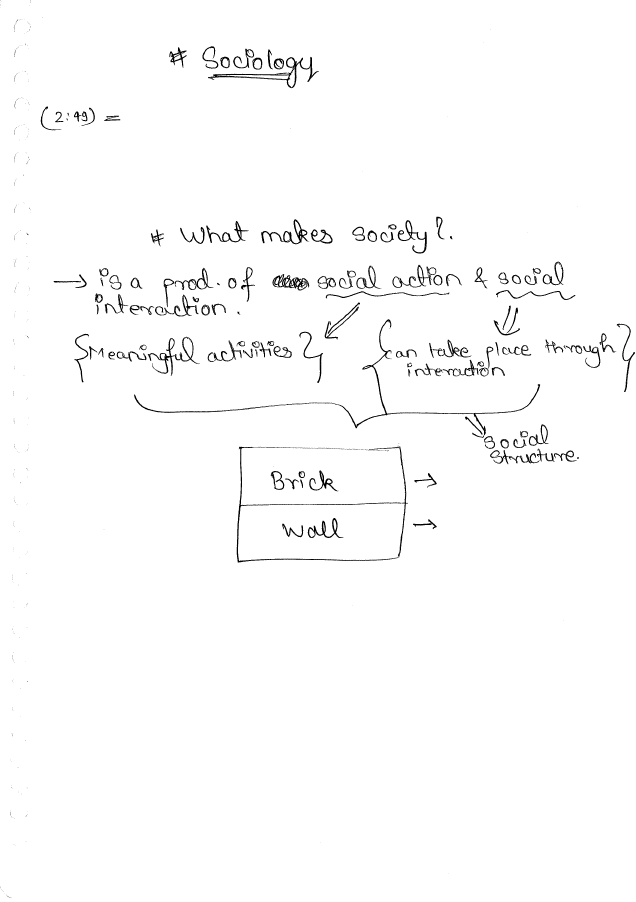 # Sociology
(2:49) =
# What makes society?.
→ is a prod. of social action & social
interaction.
{Meaningful activities}
{can take place through
interaction}
social
structure.
Brick →
Wall →